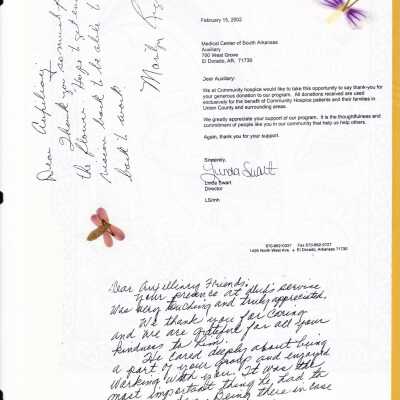 Dear Auxiliary:
Thank you so much for
the flower. Hope to get
season back to be able to
back to work.
Marilyn
February 15, 2002
Medical Center of South Arkansas
Auxiliary
700 West Grove
El Dorado, AR, 71730
Dear Auxiliary:
We at Community Hospice would like to take this opportunity to say thank-you for
your generous donation to our program. All donations received are used
exclusively for the benefit of Community Hospice patients and their families in
Union County and surrounding areas.
We greatly appreciate your support of our program. It is the thoughtfulness and
commitment of people like you in our community that help us help others.
Again, thank you for your support.
Sincerely,
Linda Swart
Linda Swart
Director
LS/mh
870-862-0337 Fax 870-862-0027
1405 North West Ave. El Dorado, Arkansas 71730
Dear Auxiliary Friends:
Your presence at service
was very touching and truly appreciated.
We thank you for caring
and we are grateful for all your
kindness to him.
He cared deeply about being
a part of your group and enjoyed
working with you. It was the
most important thing he had to
Being there in case